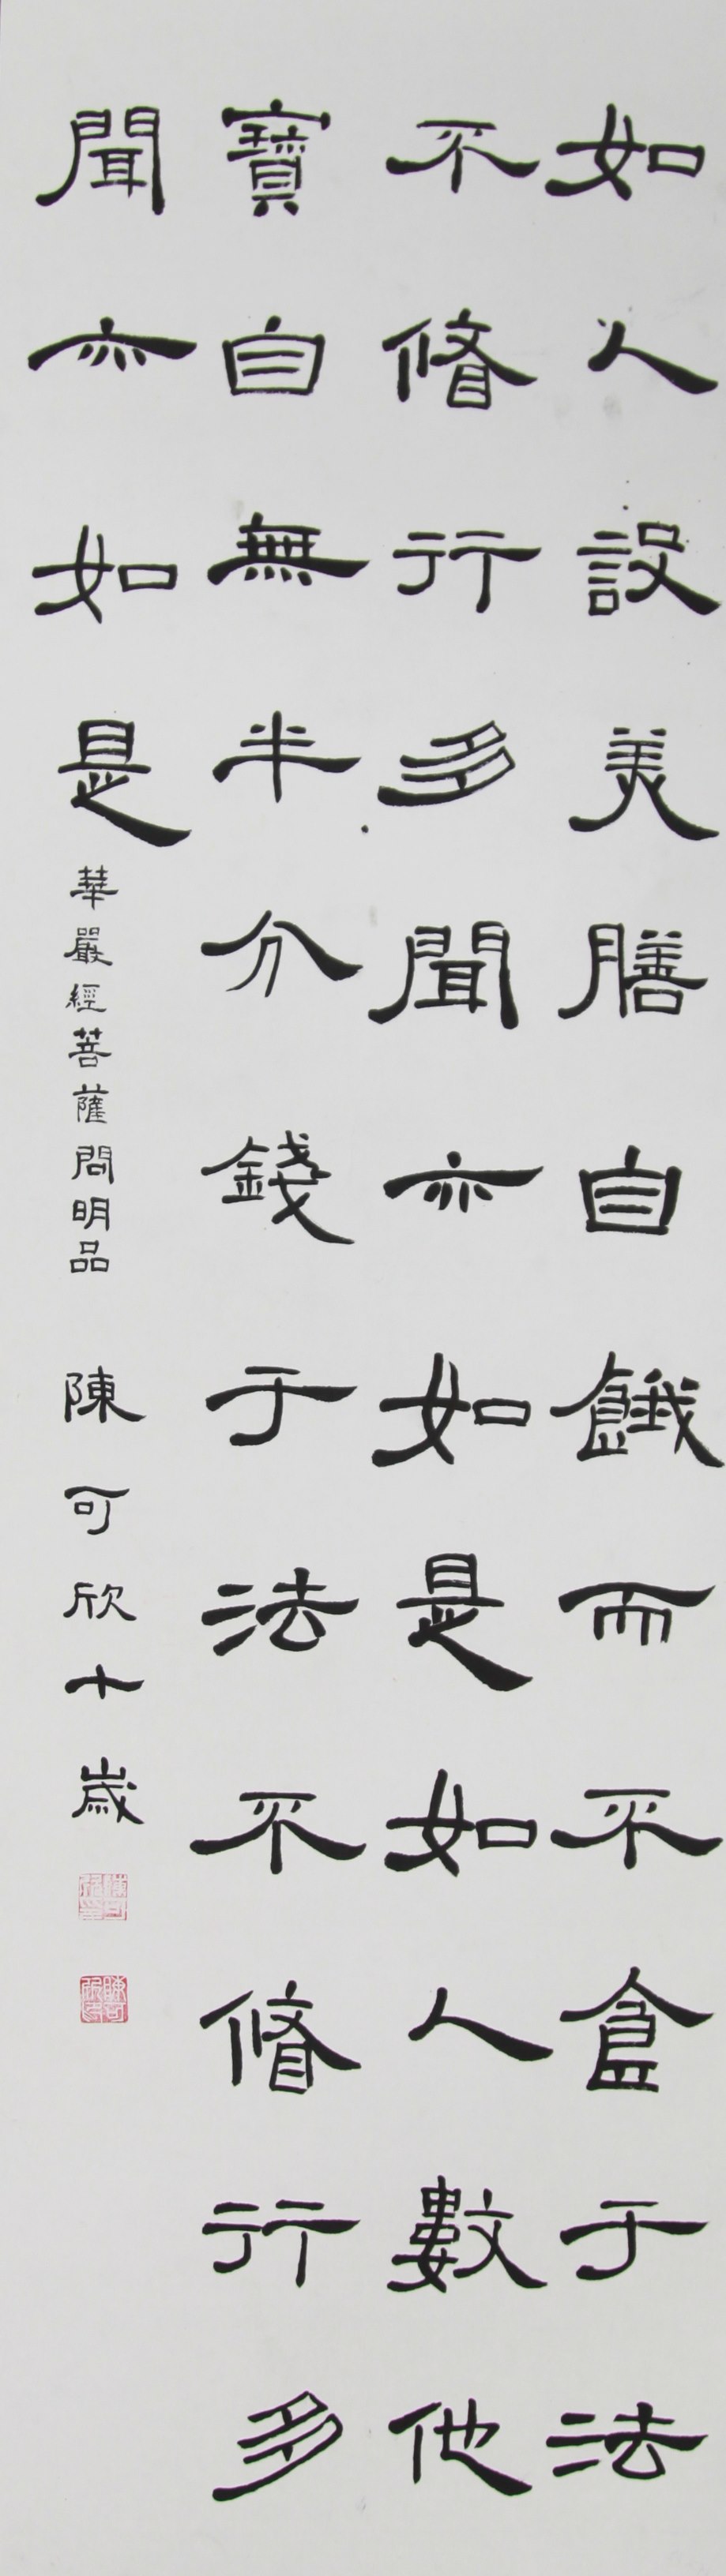 如人設美膳自餓而不食于法
不脩行多聞亦如是如人數他
寶自無半分錢于法不脩行多
聞亦如是
華嚴經菩薩問明品 陳可欣十歲